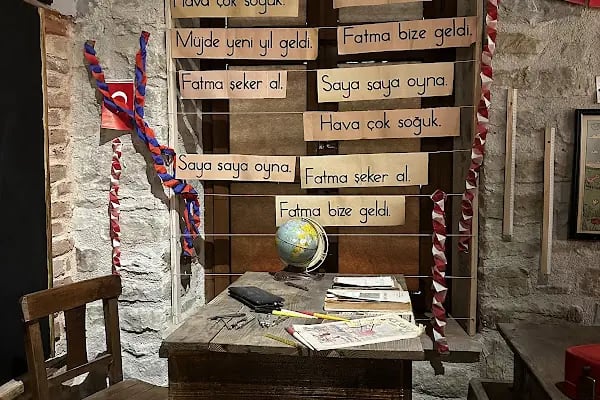 Hava çok soğuk.
Müjde yeni yıl geldi.
Fatma bize geldi.
Fatma şeker al.
Saya saya oyna.
Hava çok soğuk.
Saya saya oyna.
Fatma şeker al.
Fatma bize geldi.